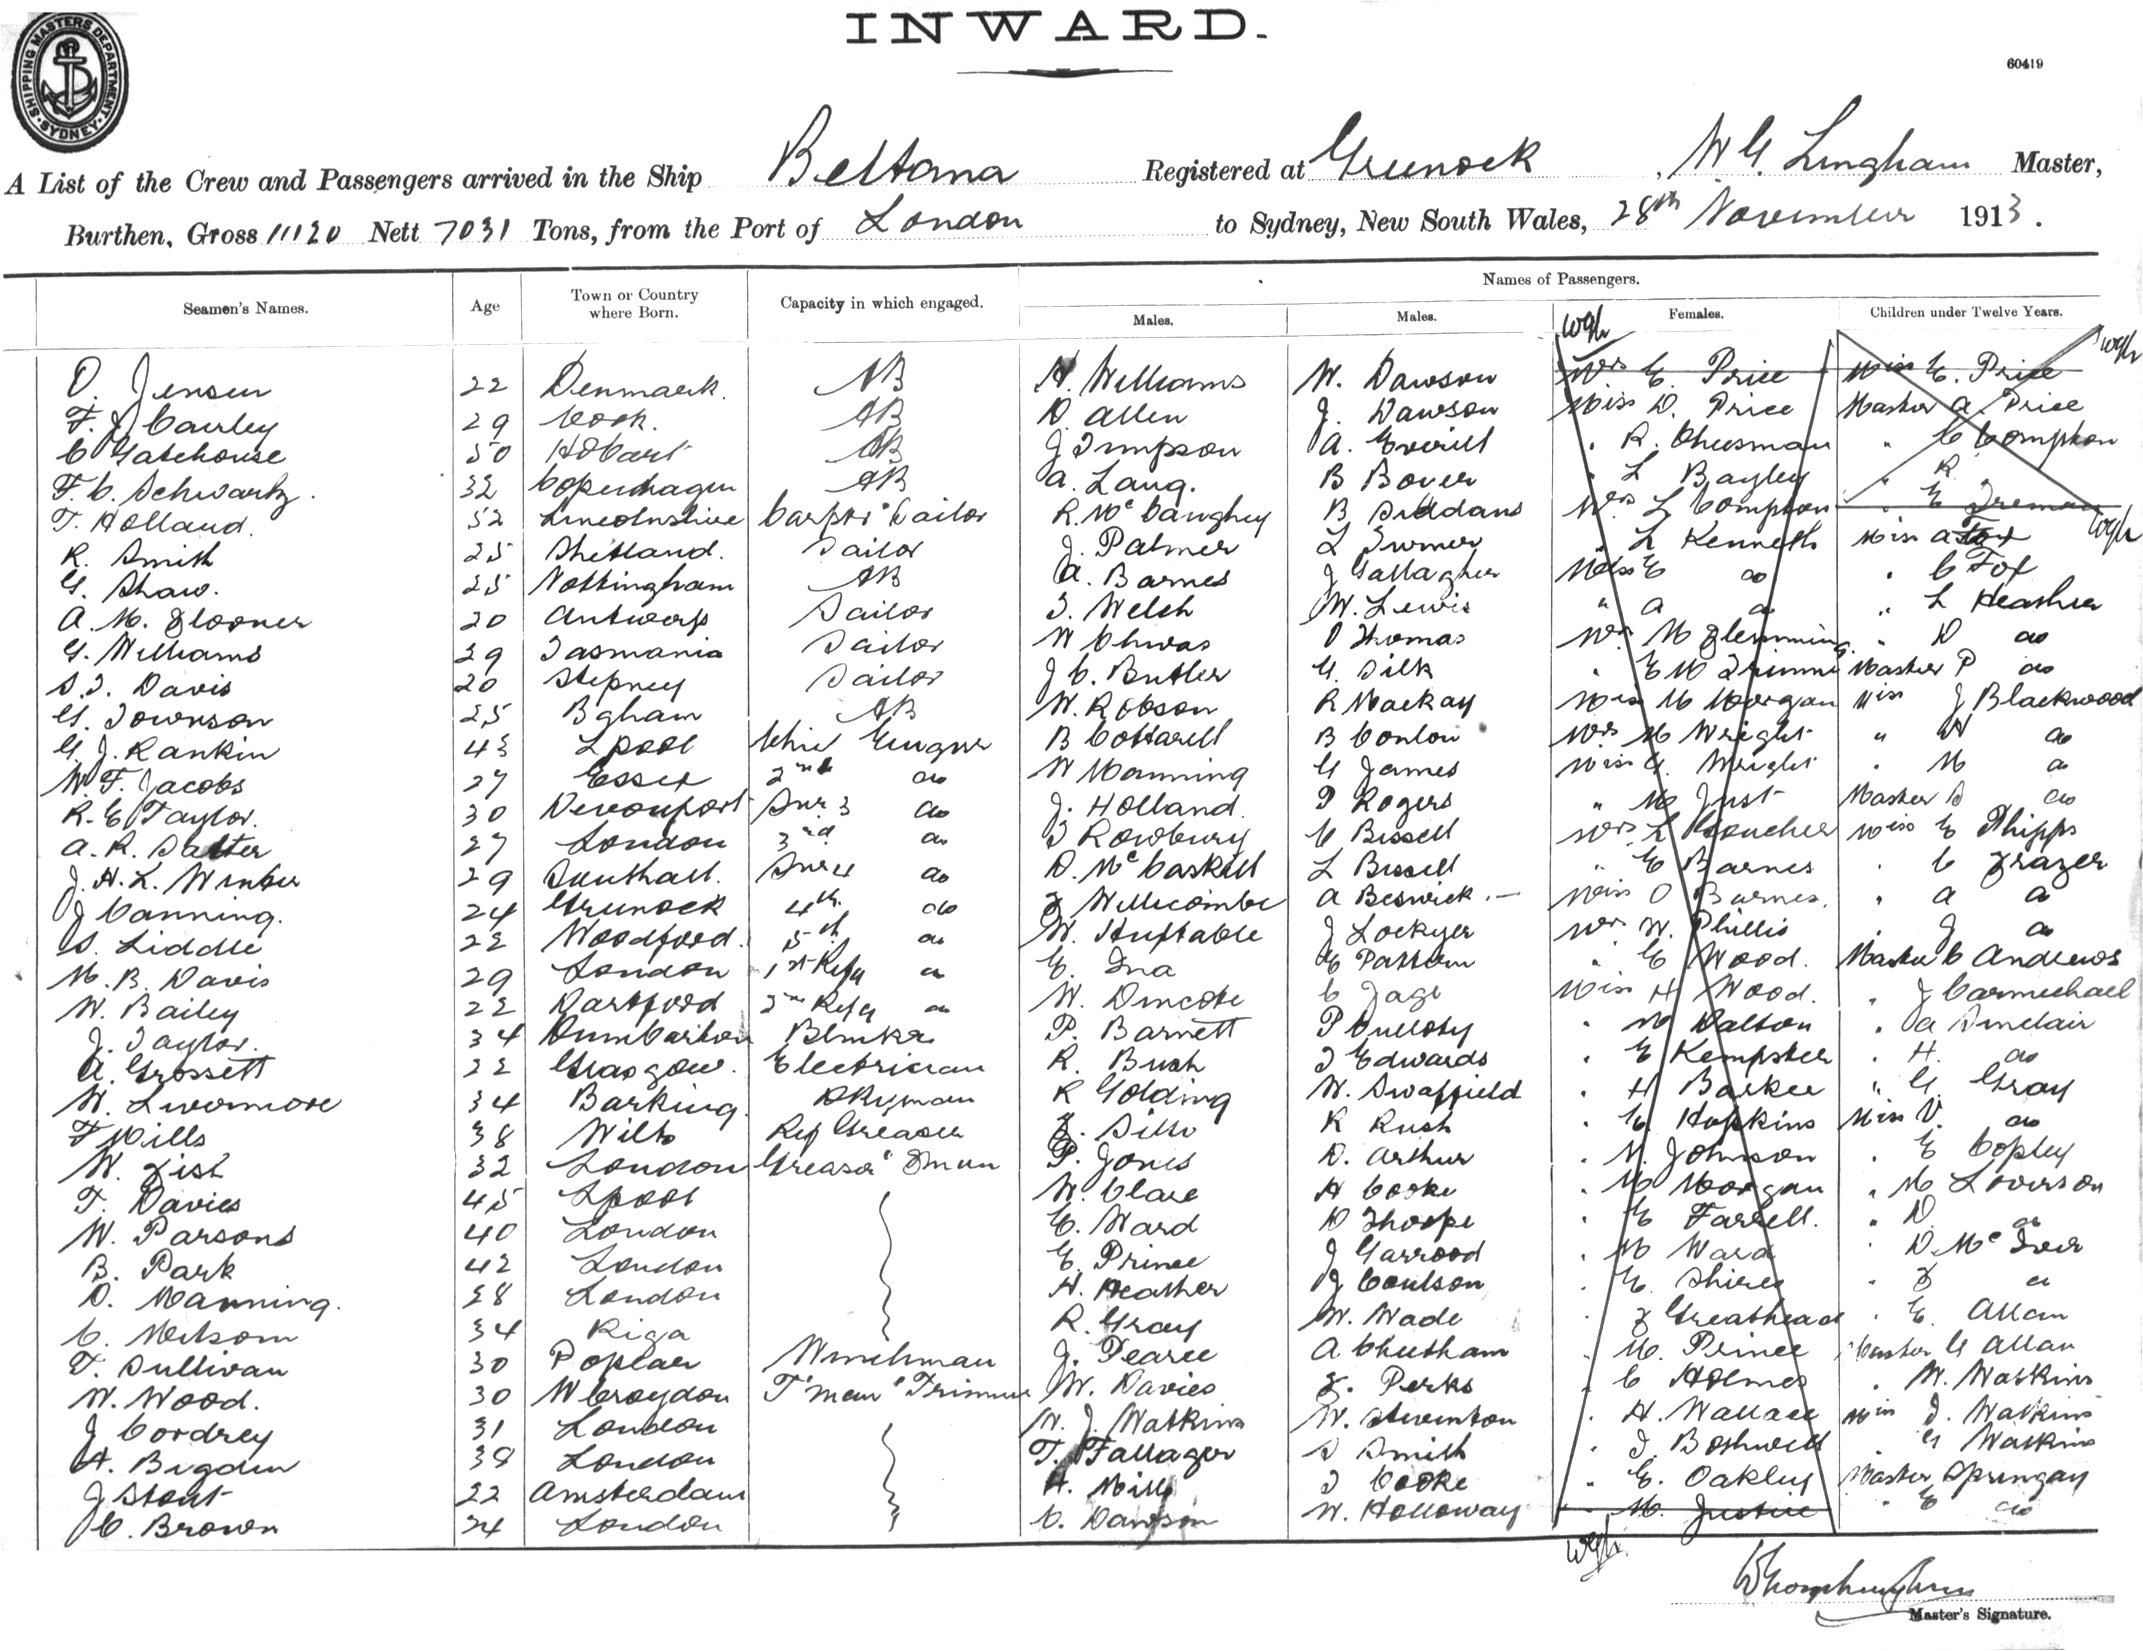 INWARD.
SHIPPING MASTERS DEPARTMENT. SYDNEY.
60419
A List of the Crew and Passengers arrived in the Ship Beltana Registered at Greenock , W G. Lingham Master,
Burthen, Gross 11120 Nett 7031 Tons, from the Port of London to Sydney, New South Wales, 28th November 1913.
Names of Passengers.
Seamen's Names. Age Town or Country where Born. Capacity in which engaged. Males. Males. Females. Children under Twelve Years.
wgh
wgh
O. Jensen 22 Denmark. AB H. Williams W. Dawson Mrs E. Price Miss E. Price
F. J Cauley 29 Cook. AB D. Allen J. Dawson Miss D. Price Master A. Price
C Gatehouse 50 Hobart AB J Impson A. Everill " R. Cheesman " C Compton
F. C. Schwartz. 32 Copenhagen AB A. Lang. B Bover " L Bayley " R
T. Holland. 52 Lincolnshire Carptr Sailor R. McCaughey B Siddans Mrs L Compton " E
R. Smith 25 Shetland. Sailor J. Palmer L Turner " L Kenneth Miss A Fox wgh
G. Shaw. 25 Nottingham AB A. Barnes J Gallagher Miss E do " C Fox
A. M. 20 Antwerp Sailor T. Welch W. Lewis " A do " L Heather
G. Williams 29 Tasmania Sailor W Chivas O Thomas Mrs M Flemming " D do
S. J. Davis 20 Stepney Sailor J C. Butler G. Silk " E M Master P do
G. Townson 25 AB W. Robson R Mackay Miss M Morgan Miss J Blackwood
G. J. Rankin 43 Lpool Chief Enginr B Cottarell B Conlon Mrs M Wright " H do
W. F. Jacobs 27 Essex 2nd do W Manning G James Miss G. Wright " M do
R. E Taylor. 30 Devonport Snr 3 do J. Holland. T Rogers " M Just Master S do
A. R. Salter 27 London 3rd do T Rowbury C Bissell Mrs L Miss E Phipps
J. H. L. Winter 29 Southall. Snr 4 do D. McCaskill L Bissell " E Barnes " C Frazer
J Canning. 24 Greenock 4th do F Willicombe A Beswick. Miss O Barnes. " A do
S. Liddle 22 Woodford. 5th do W. Huxtable J Lockyer Mrs W. Phillis " J do
M. B. Davis 29 London 1st Refg do E. Ina E Pattern " E Wood. Master C Andrews
W. Bailey 22 Dartford 2nd Refg do W. C Miss H Wood. " J Carmichael
J. Taylor. 34 Dumbarton P. Barnett P " M Dalton " A Sinclair
A. Grossett 22 Glasgow. Electrician R. Bush T Edwards " E Kempster " H. do
W. Livermore 34 Barking. Dkyman R Golding W. Swaffield " H Barker " G. Gray
F Mills 38 Wilts Ref Greaser F. R Rush " C Hopkins Miss V. do
W. Fish 32 London Greaser Fman P. Jones D. Arthur " M. Johnson " E Copley
F. Davies 45 Lpool W. Clare H Cooke " M Morgan " M Loverson
W. Parsons 40 London E. Ward D Thorpe " E Farrell. " D. do
B. Park 42 London E. Prince J Garrood " M Ward " D. McIver
D. Manning. 28 London H. Heather J Coulson " E. " F do
C. Melsom 34 Riga R. Gray W. Wade " F Greathead " E. Allan
F. Sullivan 30 Poplar Winchman J. Pearce A Cheetham " M. Prince Master G Allan
W. Wood. 30 W Croydon F'man Trimmer W. Davies F. Perks " C Holmes " W. Watkins
J Cordrey 31 London W. J. Watkins W. " H. Wallace Miss J. Watkins
H. Bigden 38 London T. Fallager S Smith " J. Bothwell " G Watkins
J Stout 22 Amsterdam H. Mills T Cooke " E. Oakley Master Springay
C. Brown 24 London C. Dawson W. Holloway " M. Justice " E do
wgh.
Master's Signature.